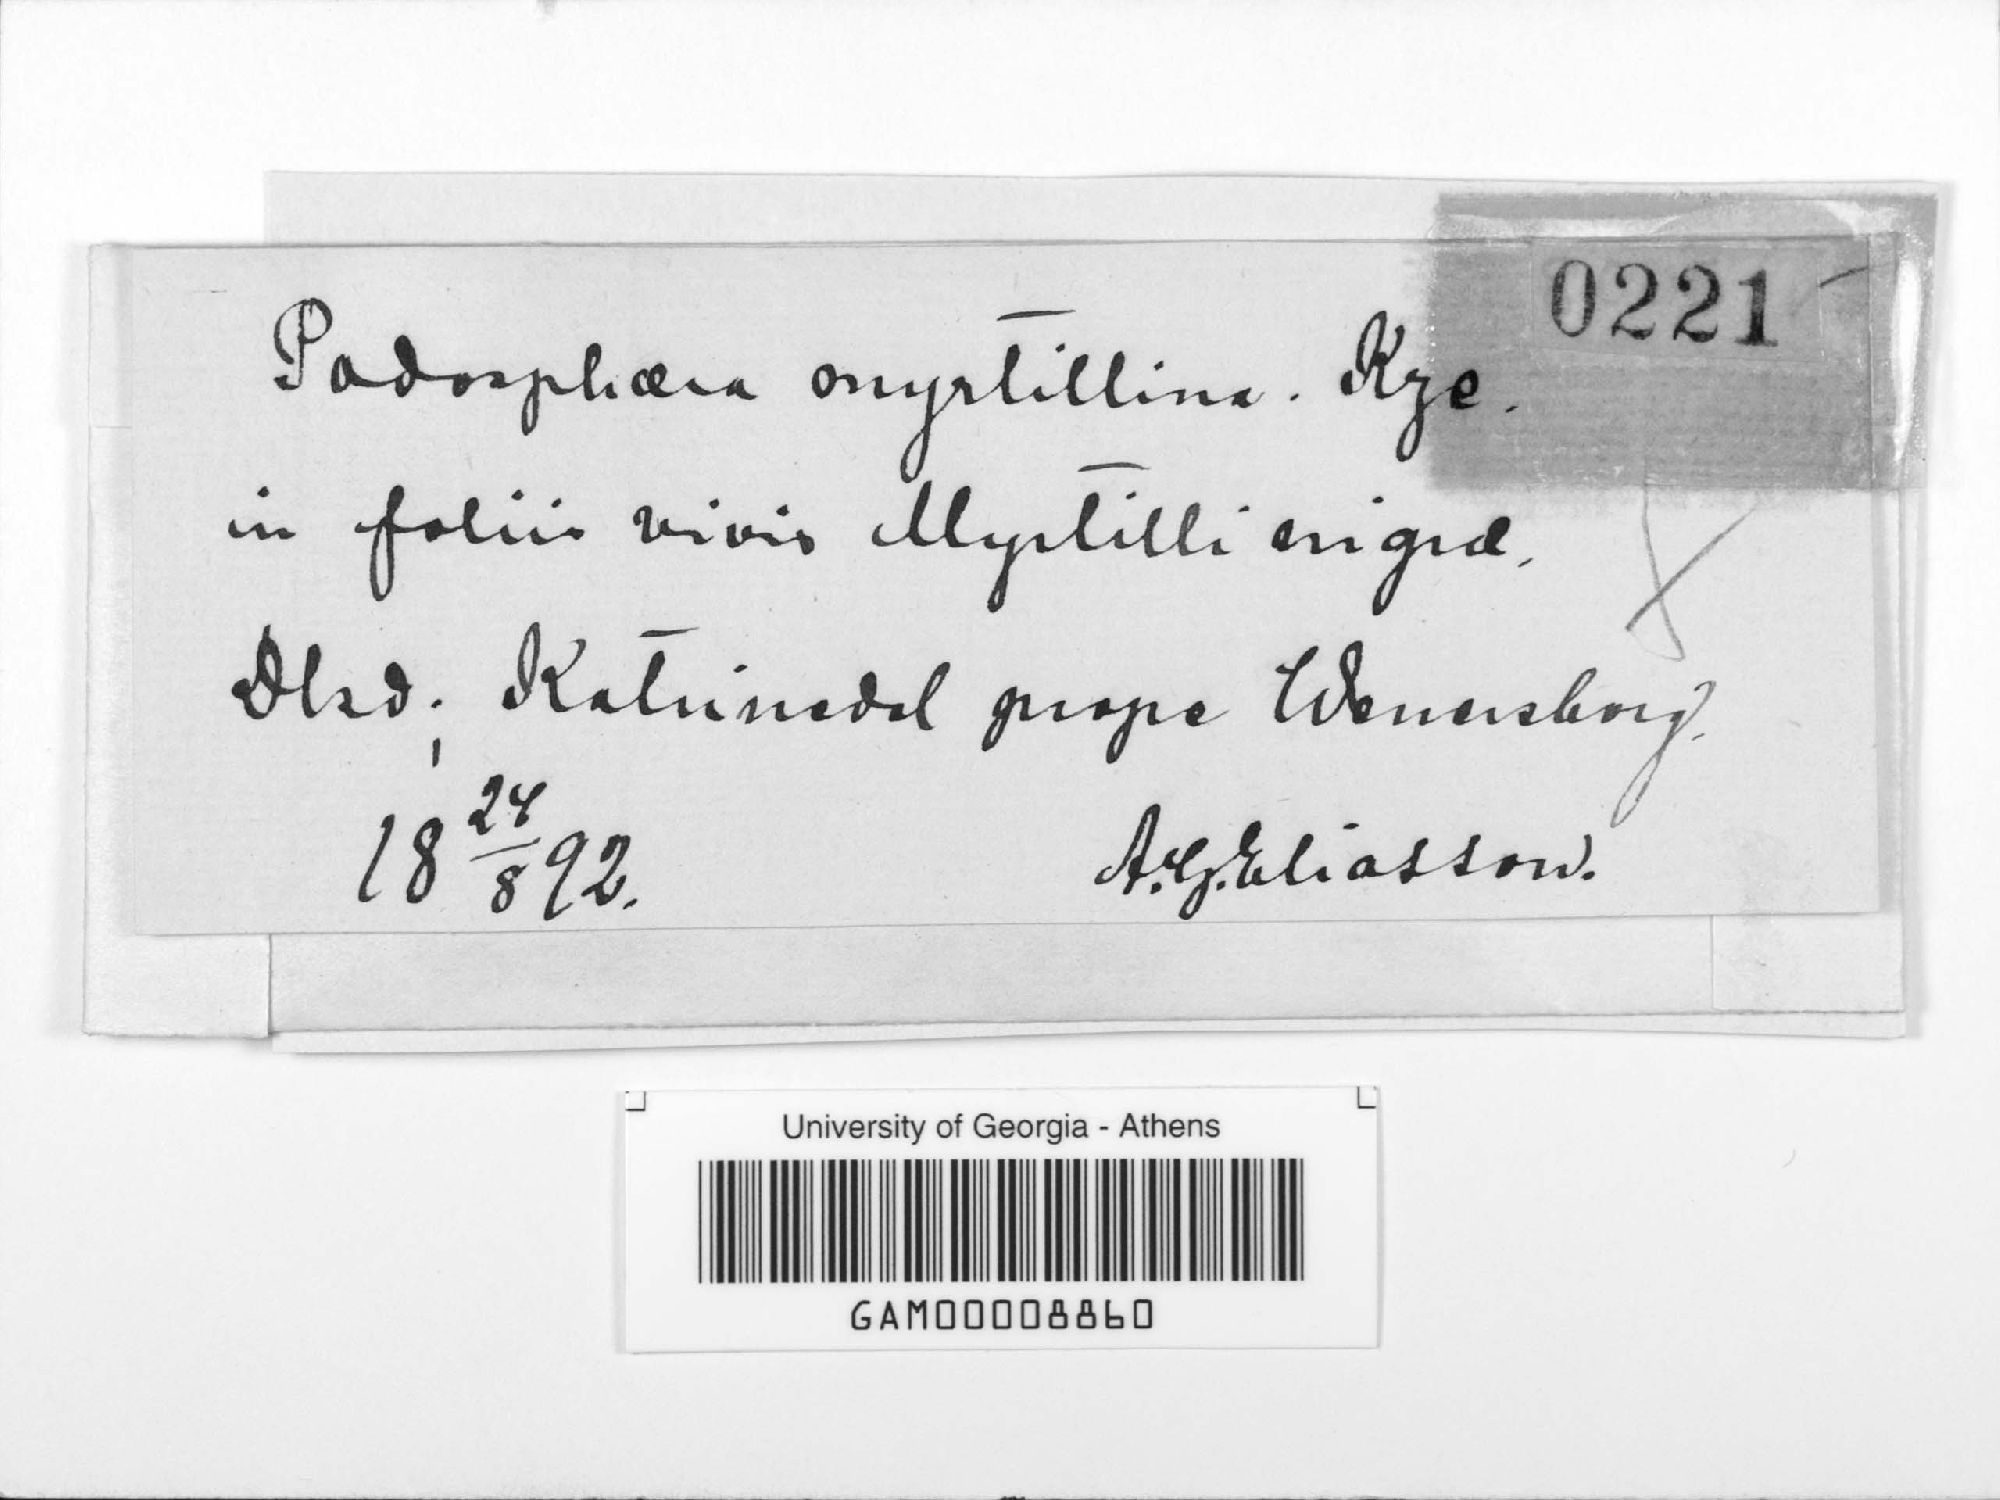 0221
Podosphæra myrtillina. Kze.
in foliis vivis Myrtilli nigræ,
Dlsd; Katrinedal prope Wenersborg.
18 24/8 92.
A.G. Eliasson.
University of Georgia - Athens
GAM00008860